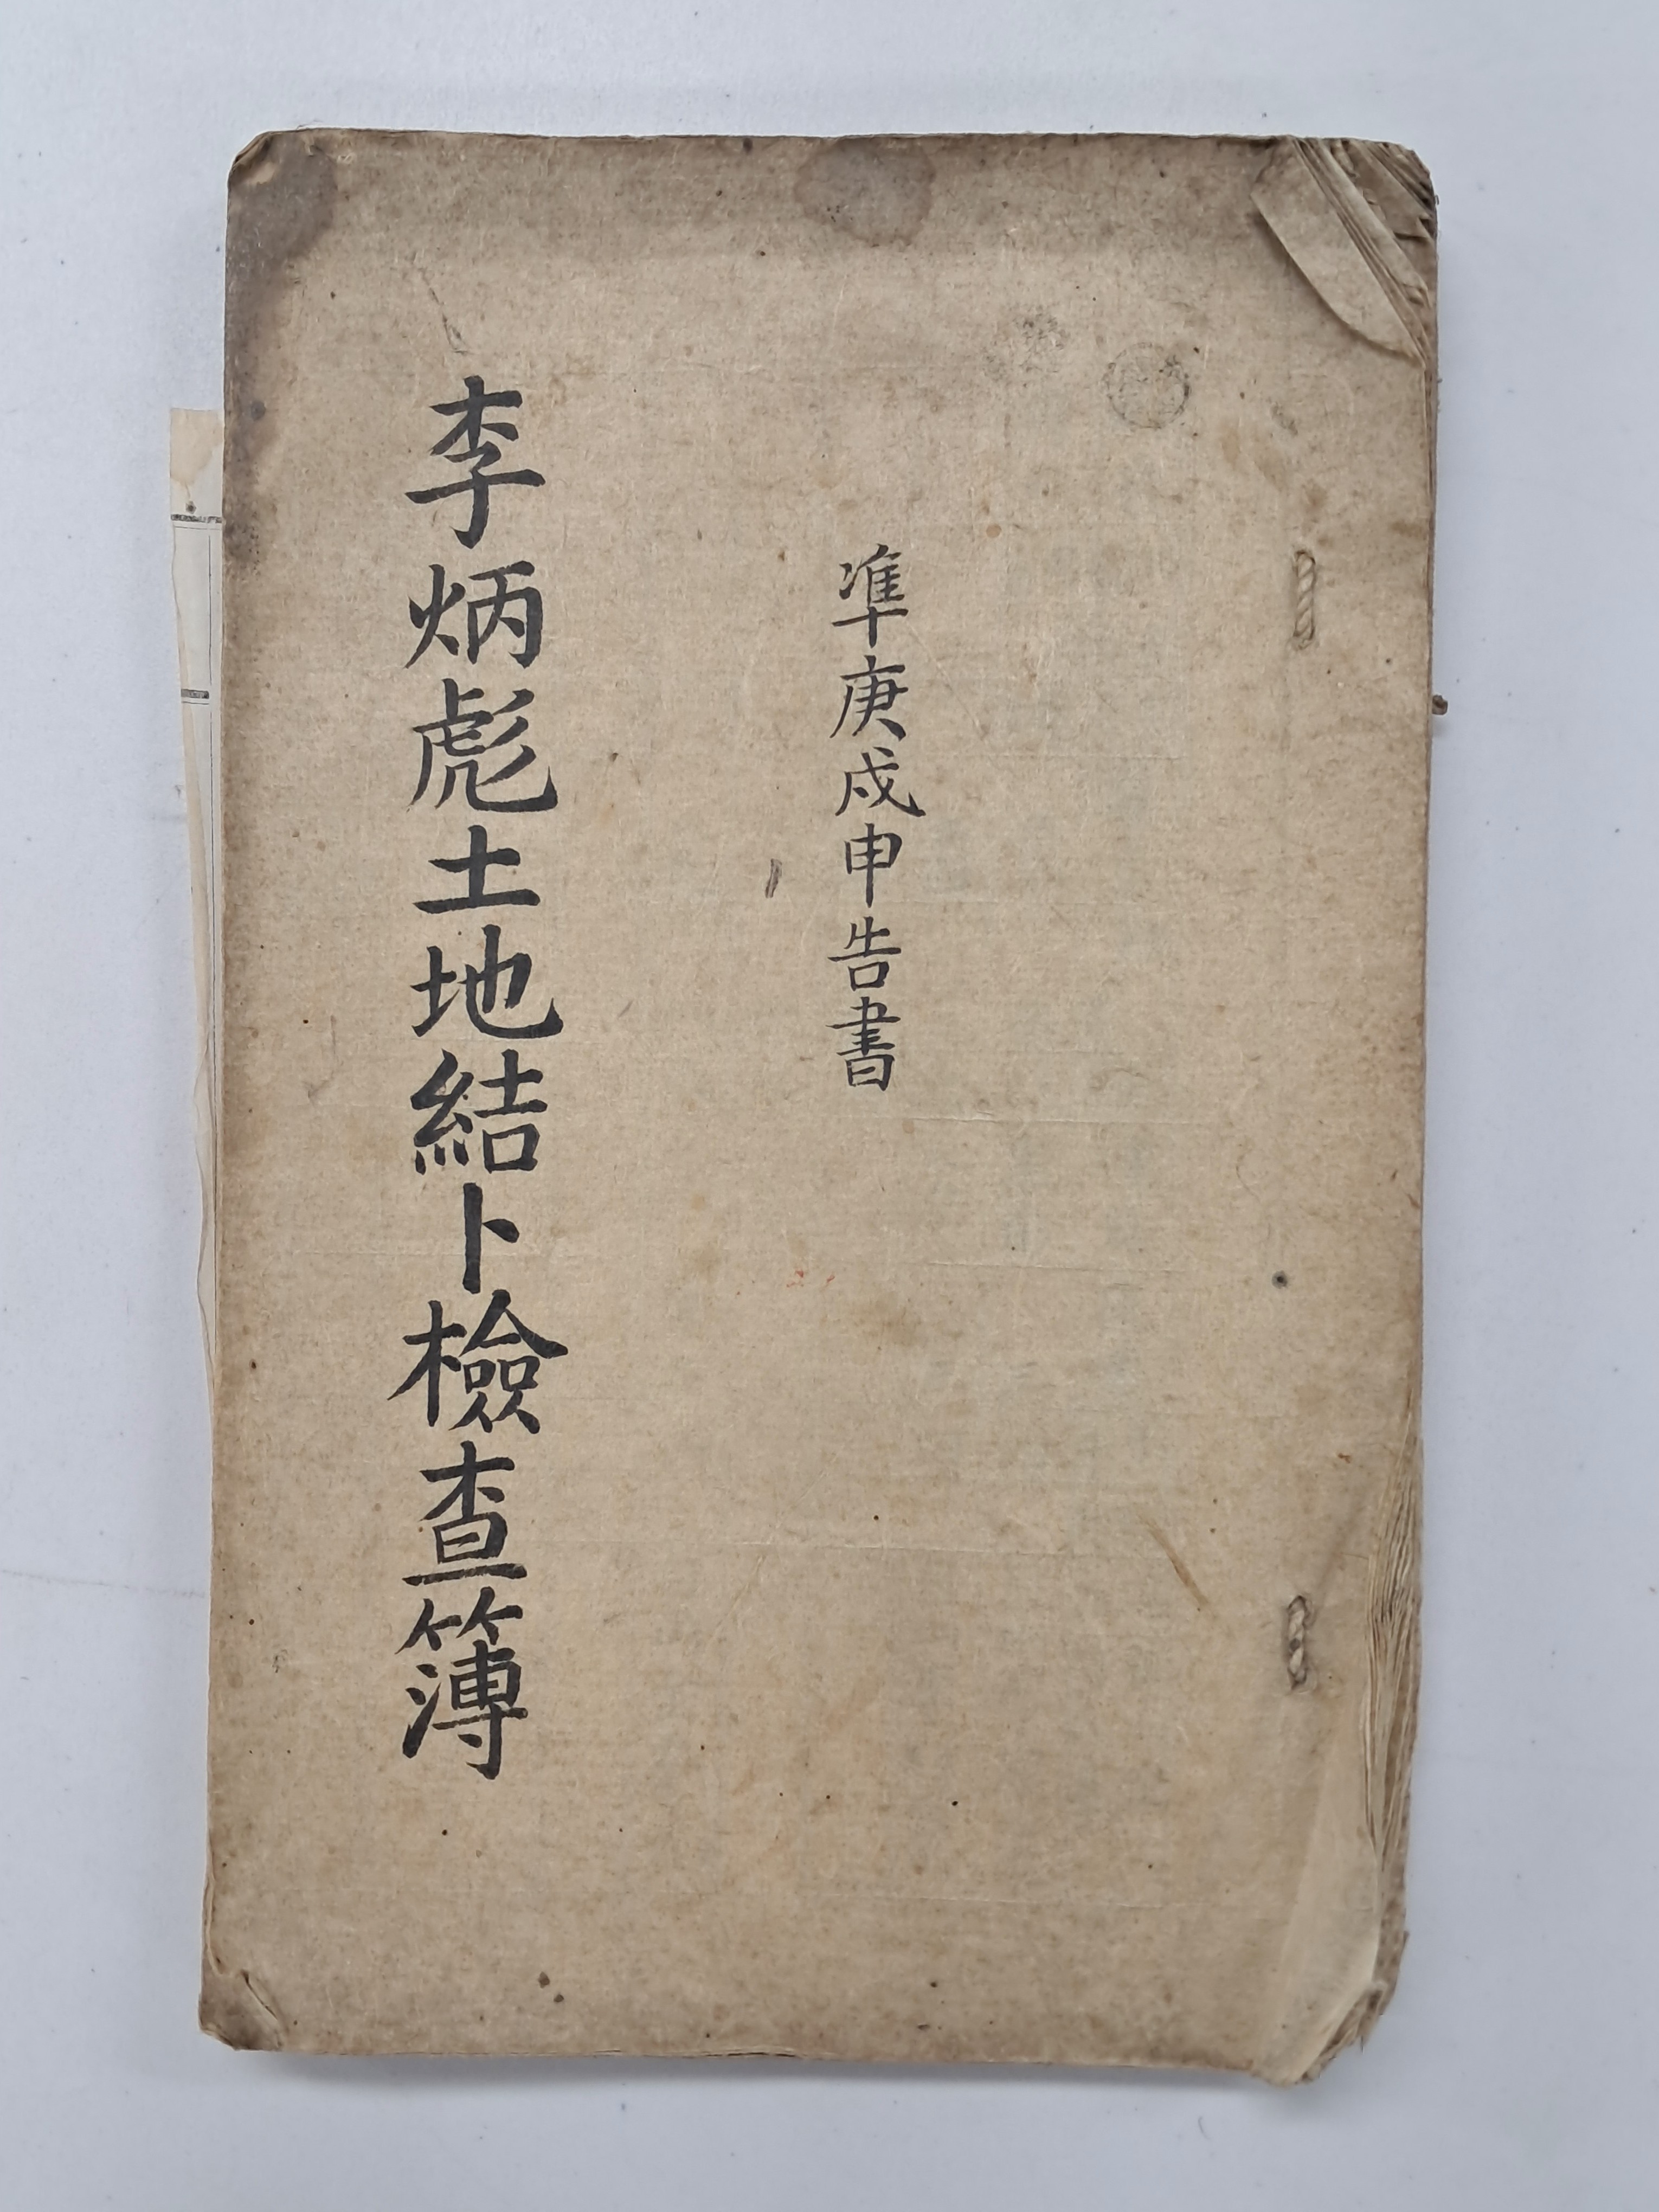 凖庚戍申告書
李炳彪土地結卜檢查簿